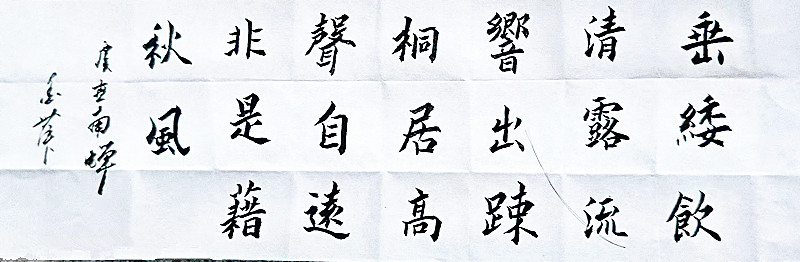 垂緌飲
清露流
響出踈
桐居高
聲自遠
非是藉
秋風
虞世南蟬